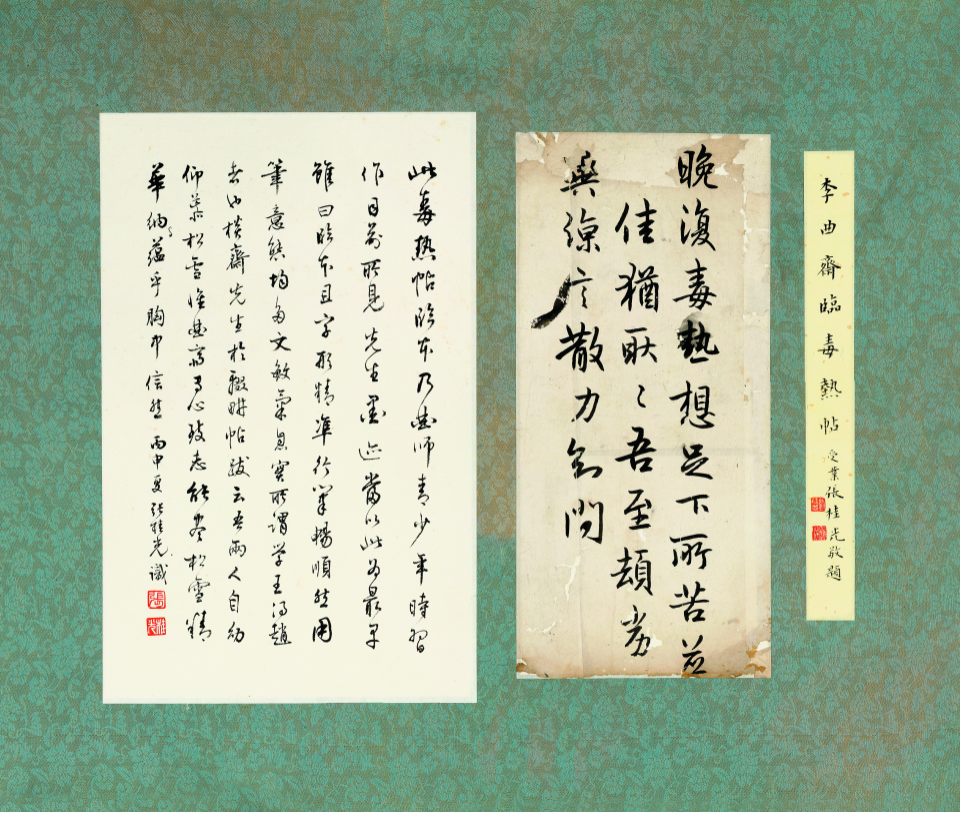 李曲齋臨毒熱帖 受業張桂光敬題
晚復毒熱想足下所苦並
佳猶耿〻吾至頓劣
冀涼言散力知問
此毒熱帖臨本乃曲師青少年時習
作目前所見先生墨迹當以此為最早
雖曰臨本且字形精準行筆暢順然用
筆意態均多文敏氣息實所謂学王得趙
者也樸齋先生於輟畊帖跋云吾兩人自幼
仰慕松雪惟曲齋專心致志能盡松雪精
華納〻蘊乎胸中信然 丙申夏張桂光識